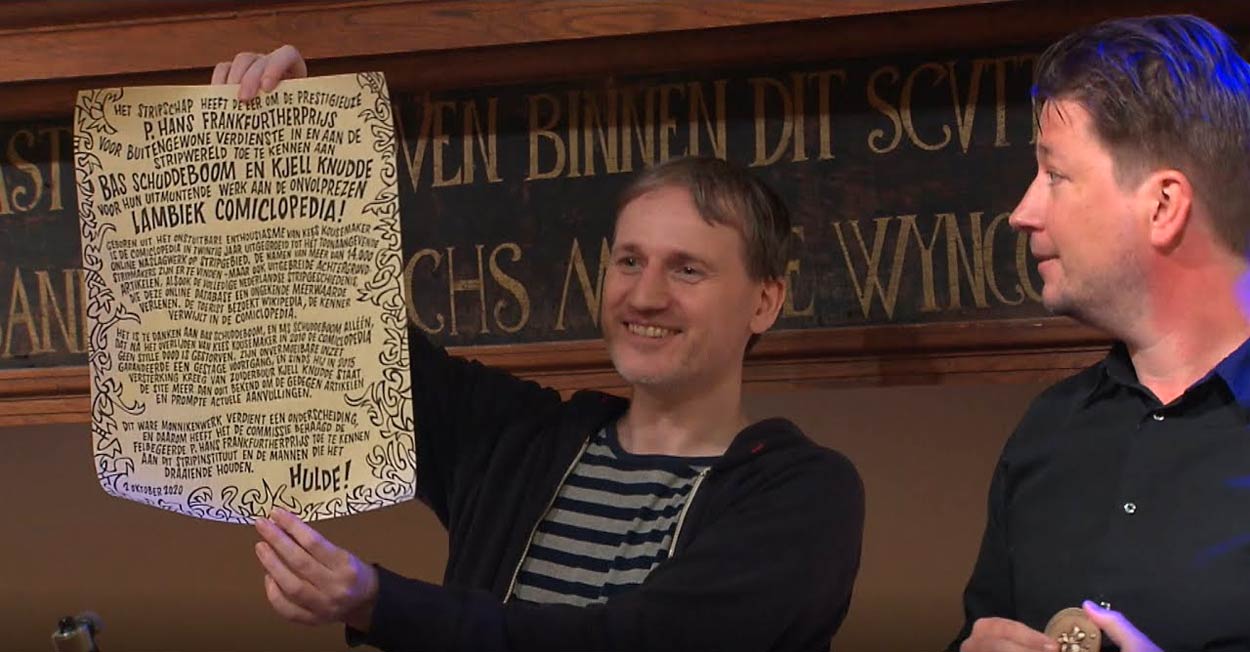 HET STRIPSCHAP HEEFT DE EER OM DE PRESTIGIEUZE
P. HANS FRANKFURTHERPRIJS
VOOR BUITENGEWONE VERDIENSTE IN EN AAN DE
STRIPWERELD TOE TE KENNEN AAN
BAS SCHUDDEBOOM EN KJELL KNUDDE
VOOR HUN UITMUNTENDE WERK AAN DE ONVOLPREZEN
LAMBIEK COMICLOPEDIA!
GEBOREN UIT HET ONSTUITBARE ENTHOUSIASME VAN KEES KOUSEMAKER
IS DE COMICLOPEDIA IN TWINTIG JAAR UITGEGROEID TOT HET TOONAANGEVENDE
ONLINE NASLAGWERK OP STRIPGEBIED. DE NAMEN VAN MEER DAN 14.000
STRIPMAKERS ZIJN ER TE VINDEN - MAAR OOK UITGEBREIDE ACHTERGROND-
ARTIKELEN, ALSOOK DE VOLLEDIGE NEDERLANDSE STRIPGESCHIEDENIS,
DIE DEZE ONLINE DATABASE EEN ONGEKENDE MEERWAARDE
VERLENEN. DE TOERIST BEZOEKT WIKIPEDIA, DE KENNER
VERWIJLT IN DE COMICLOPEDIA.
HET IS TE DANKEN AAN BAS SCHUDDEBOOM, EN BAS SCHUDDEBOOM ALLEEN,
DAT NA HET OVERLIJDEN VAN KEES KOUSEMAKER IN 2010 DE COMICLOPEDIA
GEEN STILLE DOOD IS GESTORVEN. ZIJN ONVERMOEIBARE INZET
GARANDEERDE EEN GESTAGE VOORTGANG, EN SINDS HIJ IN 2015
VERSTERKING KREEG VAN ZUIDERBUUR KJELL KNUDDE STAAT
DE SITE MEER DAN OOIT BEKEND OM DE GEDEGEN ARTIKELEN
EN PROMPTE ACTUELE AANVULLINGEN.
DIT WARE MONNIKENWERK VERDIENT EEN ONDERSCHEIDING,
EN DAAROM HEEFT HET DE COMMISSIE BEHAAGD DE
FELBEGEERDE P. HANS FRANKFURTHERPRIJS TOE TE KENNEN
AAN DIT STRIPINSTITUUT EN DE MANNEN DIE HET
DRAAIENDE HOUDEN.
HULDE!
2 OKTOBER 2020
AST VEN BINNEN DIT SCVTT
AN CHS M E WYNCO